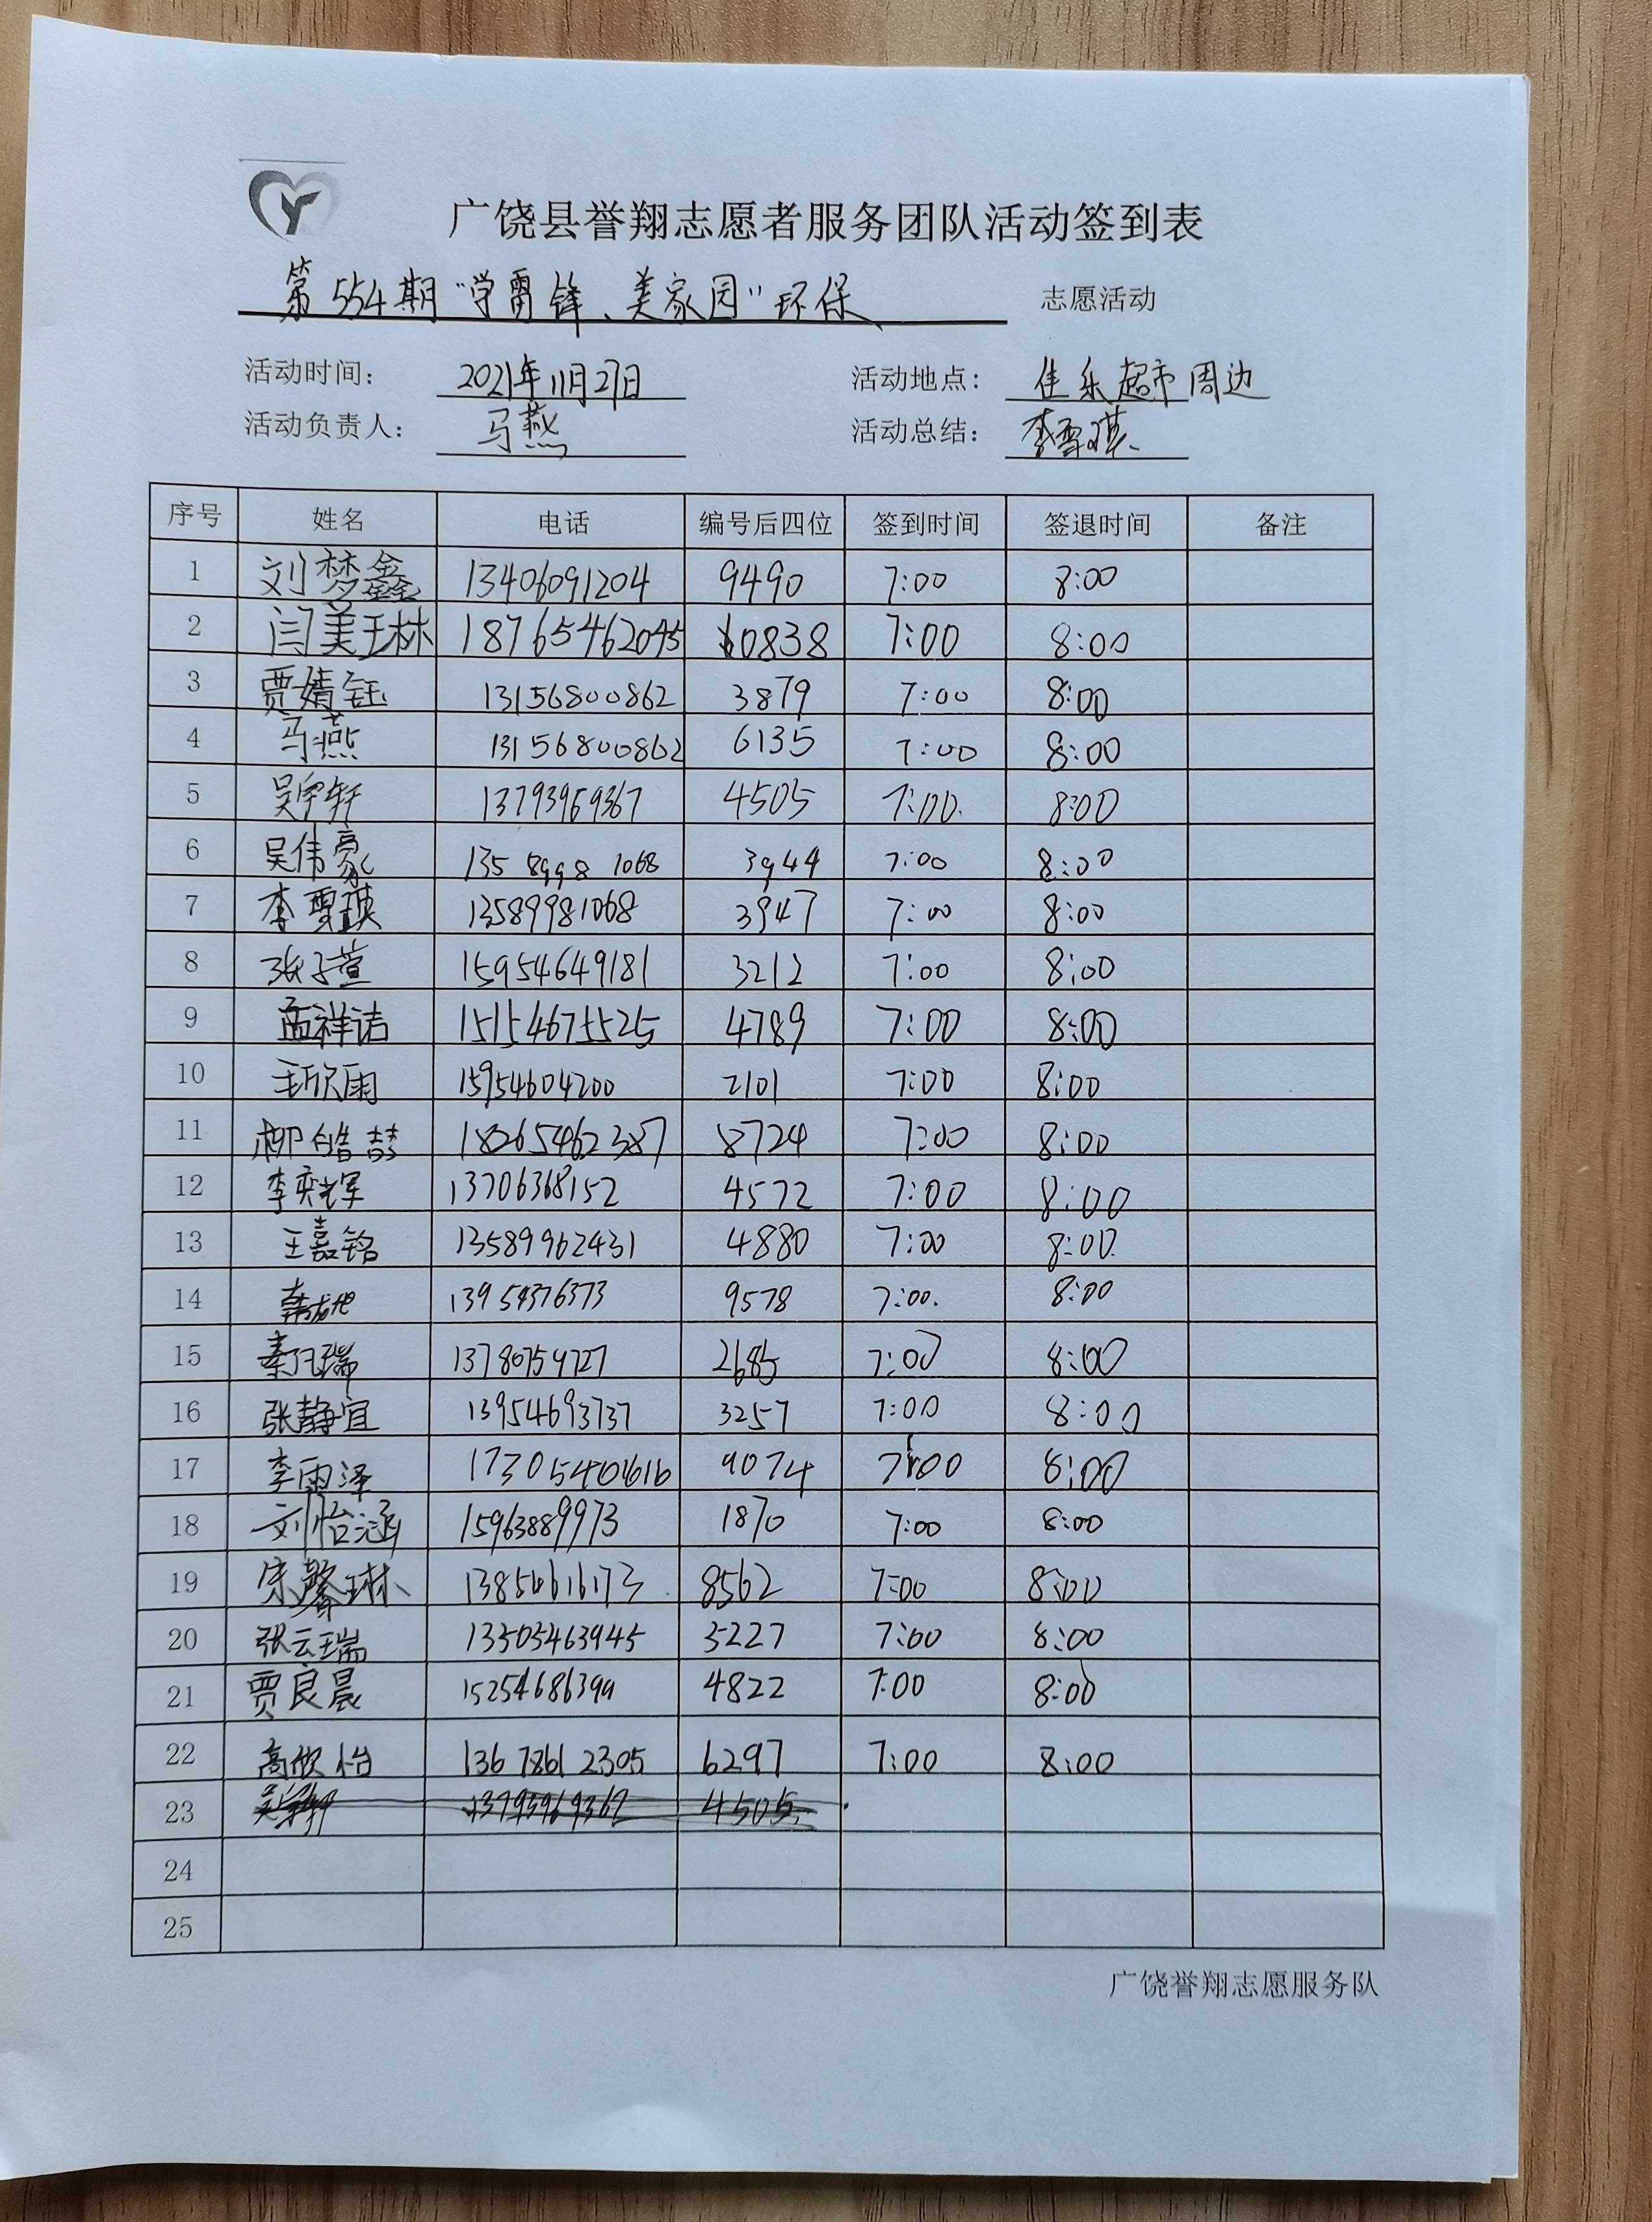 广饶县誉翔志愿者服务团队活动签到表
第554期“学雷锋、美家园”环保 志愿活动
活动时间: 2021年11月27日 活动地点: 佳乐超市周边
活动负责人: 马燕 活动总结: 李雪琪
序号 姓名 电话 编号后四位 签到时间 签退时间 备注
1 刘梦鑫 13406091204 9490 7:00 8:00
2 闫美琳 18765462045 0838 7:00 8:00
3 贾婧钰 13156800862 3879 7:00 8:00
4 马燕 13156800862 6135 7:00 8:00
5 吴宇轩 13793969367 4505 7:00 8:00
6 吴伟豪 135 8998 1068 3944 7:00 8:00
7 李雪琪 13589981068 3947 7:00 8:00
8 张子萱 15954649181 3212 7:00 8:00
9 孟祥洁 15154675525 4789 7:00 8:00
10 王欣雨 15954604200 2101 7:00 8:00
11 柳皓喆 18265462387 8724 7:00 8:00
12 李奕辉 13706368152 4572 7:00 8:00
13 王嘉铭 13589962431 4880 7:00 8:00
14 13954376373 9578 7:00 8:00
15 13780754727 2685 7:00 8:00
16 张静宜 13954693737 3257 7:00 8:00
17 李雨泽 9074 7:00 8:00
18 刘怡涵 15963889973 1870 7:00 8:00
19 宋馨琳 8562 7:00 8:00
20 张云瑞 13505463945 3227 7:00 8:00
21 贾良晨 4822 7:00 8:00
22 高欣怡 136 7861 2305 6297 7:00 8:00
23 吴宇轩 13793969367 4505
24
25
广饶誉翔志愿服务队